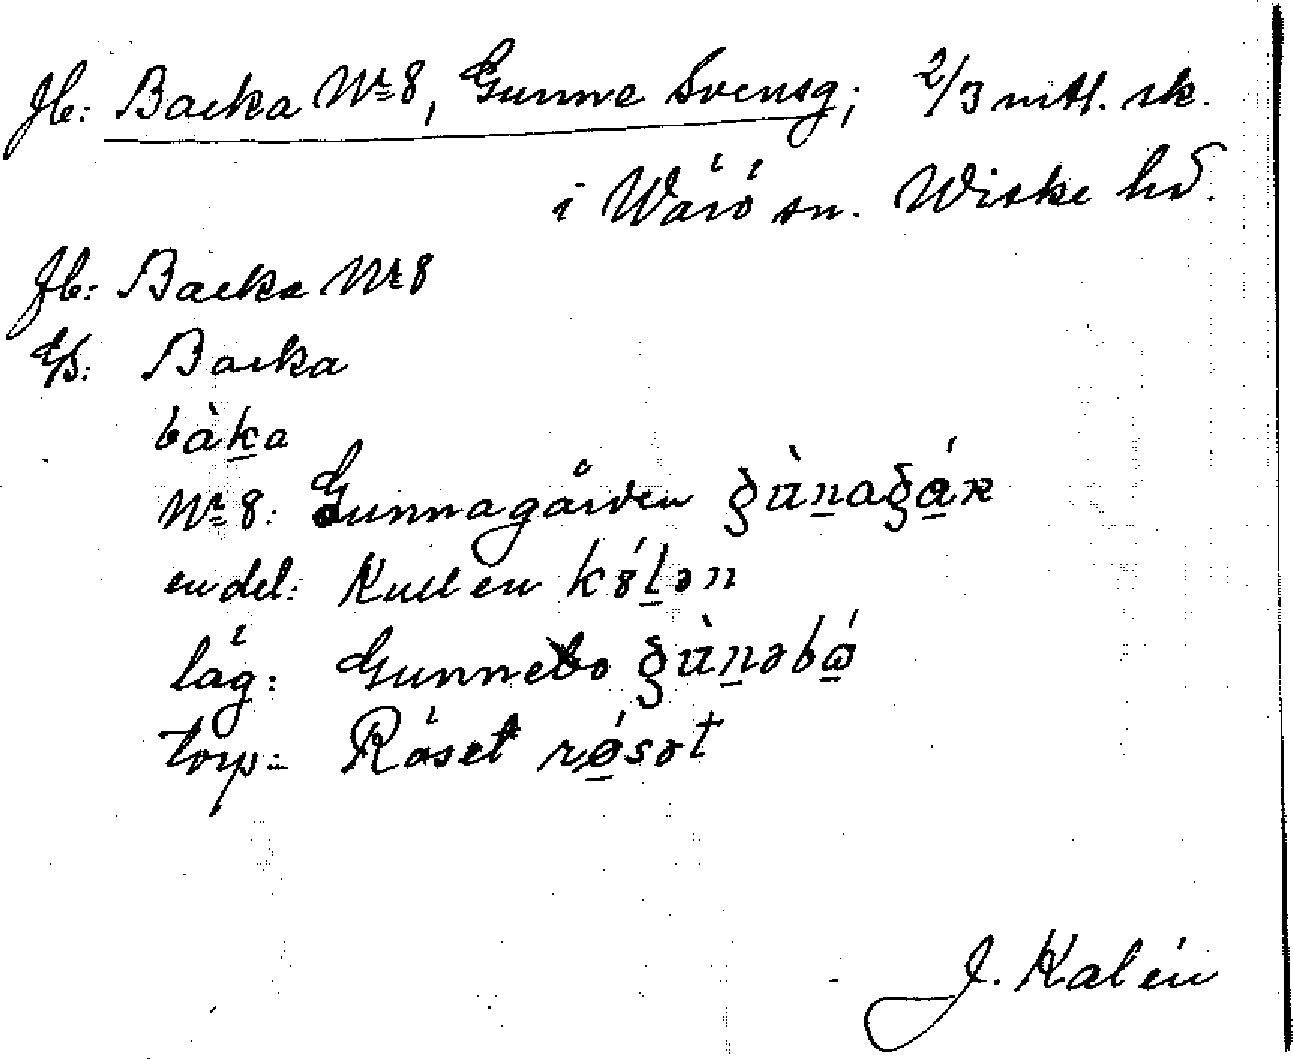 Jb: Backa Nr 8, Gunne Svensg; 2/3 mtl. sk.
i Wärö sn. Wiske hd.
Jb: Backa Nr 8
Backa
bàk̲a
Nr 8: Gunnagården
en del: Kullen
låg: Gunnebo
torp: Röset rǿ̲sət
J. Kalén